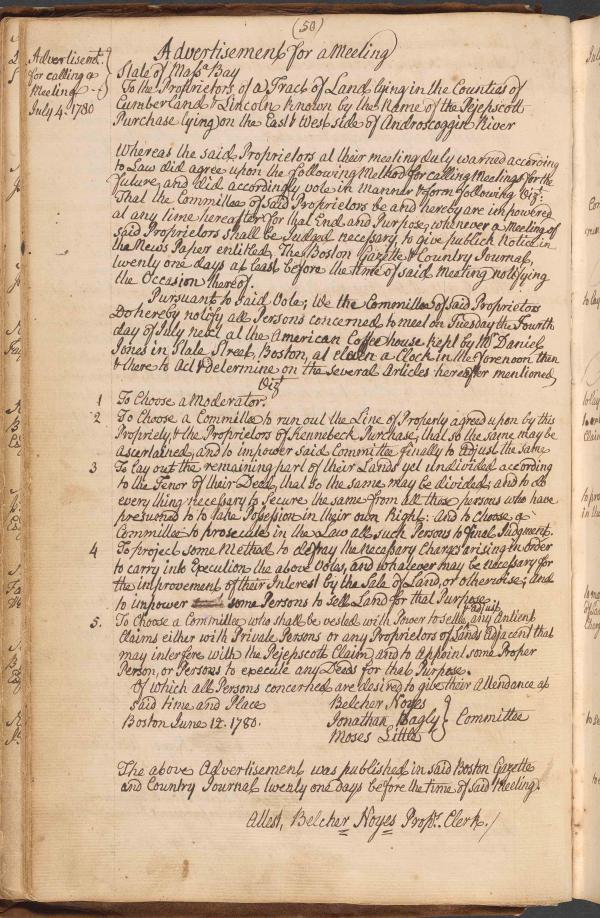 (50)
Advertisemt.
for calling a
Meeting
July 4. 1780
Advertisement for a Meeting
State of Massa Bay
To the Proprietors of a Tract of Land lying in the Counties of
Cumberland & Lincoln known by the Name of the Pejepscott
Purchase lying on the East & West side of Androscoggin River
Whereas the said Proprietors at their meeting duly warned according
to Law did agree upon the following Method for calling Meetings for the
future, and did accordingly vote in manner & form following Vizt.
That the Committee of said Proprietors be and hereby are impowered
at any time hereafter for that End and Purpose, whenever a Meeting of
said Proprietors shall be Judged necessary to give publick Notice in
the News Paper entitled, The Boston Gazette & Country Journal,
twenty one days at least before the time of said meeting notifying
the Occasion thereof.
Pursuant to said Vote; We the Committee of said Proprietors
Do hereby notify all Persons concerned to meet on Tuesday the Fourth
day of July next at the American Coffee house kept by Mr Daniel
Jones in State Street, Boston, at eleven a Clock in the forenoon then
& there to Act & Determine on the several Articles hereafter mentioned,
Vizt
1 To Choose a Moderator.
2 To Choose a Committee to run out the Line of Property agreed upon by this
Propriety, & the Proprietors of Kennebeck Purchase, that so the same may be
ascertained, and to impower said Committee finally to adjust the same
3 To lay out the remaining part of their Lands yet undivided according
to the Tenor of their Deed, that so the same may be divided; and to do
every thing necessary to Secure the same from all those persons who have
presumed to to take Possession in their own Right: And to Choose a
Committee to prosecute in the Law all such Persons to final Judgment.
4 To project some Method to defray the necessary Charges arising in order
to carry into Execution the above Votes, and whatever may be necessary for
the improvement of their Interest by the Sale of Land, or otherwise; and
to impower some Persons to sell Land for that Purpose.
5. To Choose a Committee who shall be vested with Power to settle, & adjust any Antient
Claims either with Private Persons or any Proprietors of Lands adjacent that
may interfere with the Pejepscott Claim, and to appoint some Proper
Person, or Persons to execute any Deeds for that Purpose.
Of which all Persons concerned are desired to give their Attendance at
said time and Place
Boston June 12. 1780.
Belcher Noyes
Jonathan Bagly
Moses Little
Committee
The above Advertisement was published in said Boston Gazette
and Country Journal twenty one days before the time of said Meeting.
Attest, Belcher Noyes Proprs. Clerk.